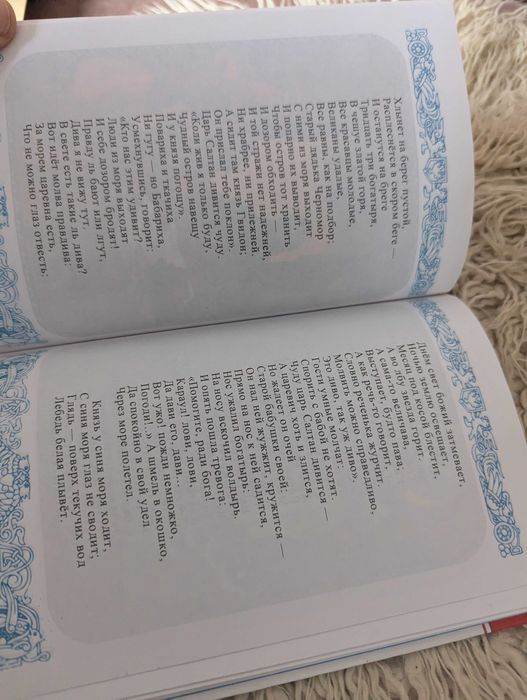 Хлынет на берег пустой,
Расплеснётся в скором беге —
И останутся на бреге
Тридцать три богатыря,
В чешуе златой горя,
Все красавцы молодые,
Великаны удалые,
Все равны, как на подбор;
Старый дядька Черномор
С ними из моря выходит
И попарно их выводит,
Чтобы остров тот хранить
И дозором обходить —
И той стражи нет надежней,
Ни храбрее, ни прилежней.
А сидит там князь Гвидон;
Он прислал тебе поклон».
Царь Салтан дивится чуду:
«Коли жив я только буду,
Чудный остров навещу
И у князя погощу».
Повариха и ткачиха
Ни гугу — но Бабариха,
Усмехнувшись, говорит:
«Кто нас этим удивит?
Люди из моря выходят
И себе дозором бродят!
Правду ль бают или лгут,
Дива я не вижу тут.
В свете есть такие ль дива?
Вот идёт молва правдива:
За морем царевна есть,
Что не можно глаз отвесть:
Днём свет божий затмевает,
Ночью землю освещает,
Месяц под косой блестит,
А во лбу звезда горит.
А сама-то величава,
Выступает, будто пава;
А как речь-то говорит,
Словно реченька журчит.
Молвить можно справедливо,
Это диво, так уж диво».
Гости умные молчат:
Спорить с бабой не хотят.
Чуду царь Салтан дивится —
А царевич хоть и злится,
Но жалеет он очей
Старой бабушки своей:
Он над ней жужжит, кружится —
Прямо на нос к ней садится,
Нос ужалил богатырь:
На носу вскочил волдырь.
И опять пошла тревога:
«Помогите, ради бога!
Караул! лови, лови,
Да дави его, дави...
Вот ужо! пожди немножко,
Погоди!..» А шмель в окошко,
Да спокойно в свой удел
Через море полетел.
Князь у синя моря ходит,
С синя моря глаз не сводит;
Глядь — поверх текучих вод
Лебедь белая плывёт.